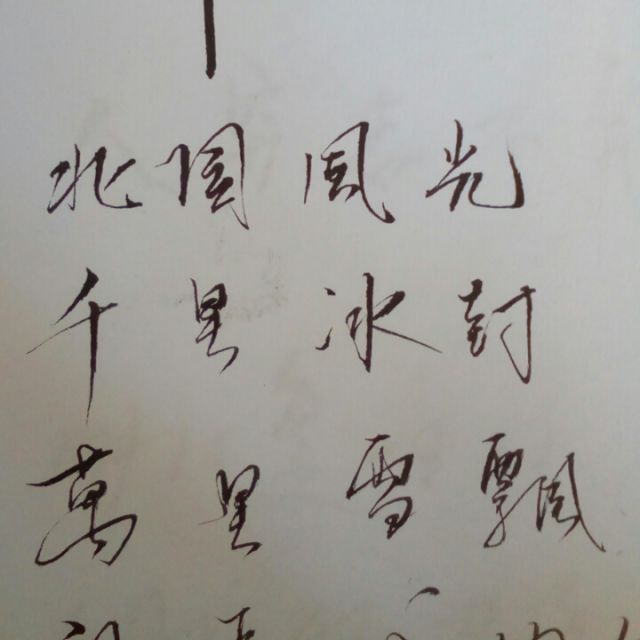 北国風光
千里冰封
萬里雪飄